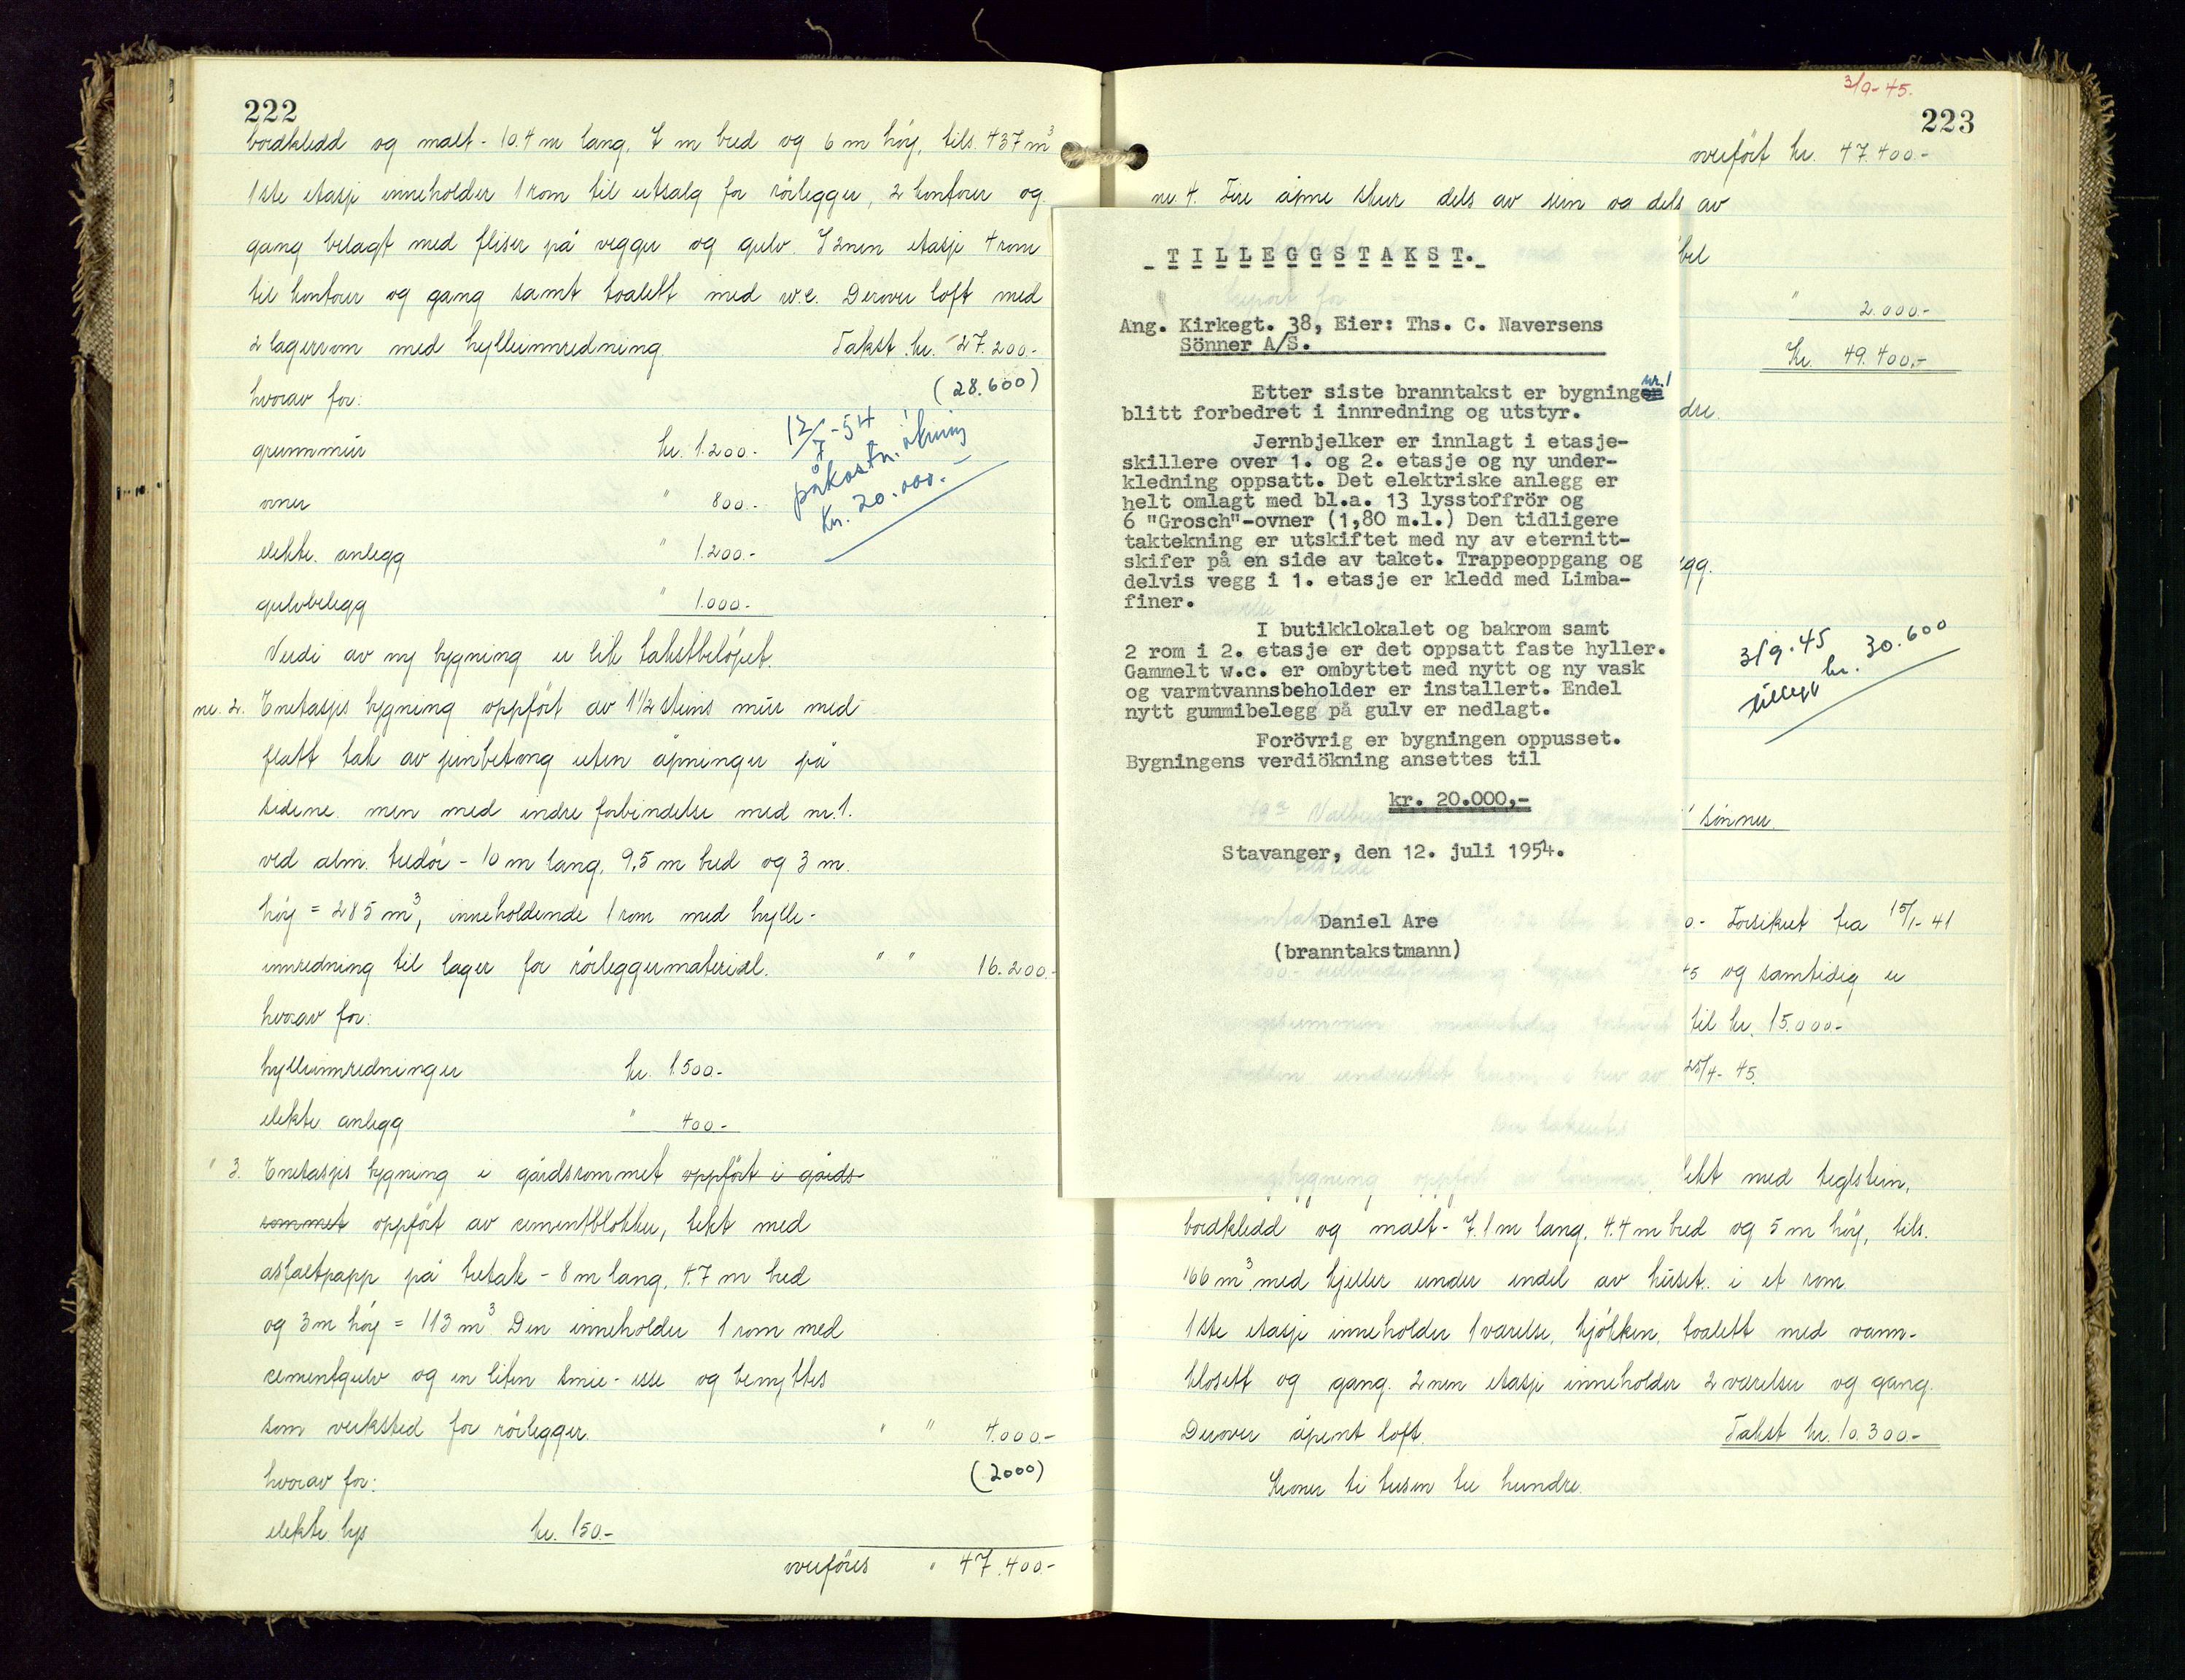 222
bordkledd og malt - 10.4 m lang, 7 m bred og 6 m høy, tils. 437 m³
1ste etasje inneholder 1 rom til utsalg for rörlegger, 2 kontorer og
gang belagt med fliser på vegger og gulv. I 2nen etasje 4 rom
til kontorer og gang samt toalett med w.c. Derover loft med
2 lagerrom med hylleinnredning. Takst kr. 27.200.-
(28.600)
hvorav for:
grunnmúr kr. 1.200.-
ovner " 800.-
12/7-54
påkostn. ökning
kr. 20.000.-
elektr. anlegg " 1.200.-
gulvbelegg " 1.000.-
Verdi av ny bygning er lik takstbelöpet.
nr. 2. Enetasjes bygning oppfört av 1½ steins múr med
flatt tak av jernbetong uten åpninger på
sidene. men med indre forbindelse med nr. 1.
ved alm. tredör - 10 m lang, 9,5 m bred og 3 m.
høy = 285 m³, inneholdende 1 rom med hylle-
innredning til lager for rörleggermateriel. " " 16.200.-
hvorav for:
hylleinnredninger kr. 1.500.-
elektr anlegg " 400.-
" 3. Enetasjes bygning i gårdsrommet oppfört i gårds-
rommet oppfört av cementblokker, tekt med
asfaltpapp på tretak - 8 m lang, 4.7 m bred
og 3 m høy = 113 m³. Den inneholder 1 rom med
cementgulv og en liten smie-esse og benyttes
som verksted for rörlegger. " " 4.000.-
(2000)
hvorav for:
elektr. lys kr. 150.-
overföres " 47.400.-
3/9-45.
223
overfört kr. 47.400.-
nr. 4. Fire åpne skur dels av sein og dels av
bel
" 2.000.-
Kr. 49.400,-
dre.
egg.
3/9.45
tillegg kr. 30.600
' sönner.
0.- Forsikret fra 15/1-41
45 og samtidig er
til kr. 15.000.-
25/4-45.
tekt med teglstein,
bordkledd og malt - 7.1 m lang, 4.4 m bred og 5 m høy, tils.
166 m³. med kjeller under endel av húset. i et rom
1ste etasje inneholder 1 værelse, kjökken, toalett med vann-
klosett og gang. 2nen etasje inneholder 2 værelser og gang.
Derover åpent loft. Takst kr. 10.300.-
Kroner ti tusen tre hundre.
TILLEGGSTAKST.
Ang. Kirkegt. 38, Eier: Ths. C. Naversens
Sönner A/S.
Etter siste branntakst er bygningen nr. 1
blitt forbedret i innredning og utstyr.
Jernbjelker er innlagt i etasje-
skillere over 1. og 2. etasje og ny under-
kledning oppsatt. Det elektriske anlegg er
helt omlagt med bl.a. 13 lysstoffrör og
6 "Grosch"-ovner (1,80 m.l.) Den tidligere
taktekning er utskiftet med ny av eternitt-
skifer på en side av taket. Trappeoppgang og
delvis vegg i 1. etasje er kledd med Limba-
finer.
I butikklokalet og bakrom samt
2 rom i 2. etasje er det oppsatt faste hyller.
Gammelt w.c. er ombyttet med nytt og ny vask
og varmtvannsbeholder er installert. Endel
nytt gummibelegg på gulv er nedlagt.
Forövrig er bygningen oppusset.
Bygningens verdiökning ansettes til
kr. 20.000,-
Stavanger, den 12. juli 1954.
Daniel Are
(branntakstmann)